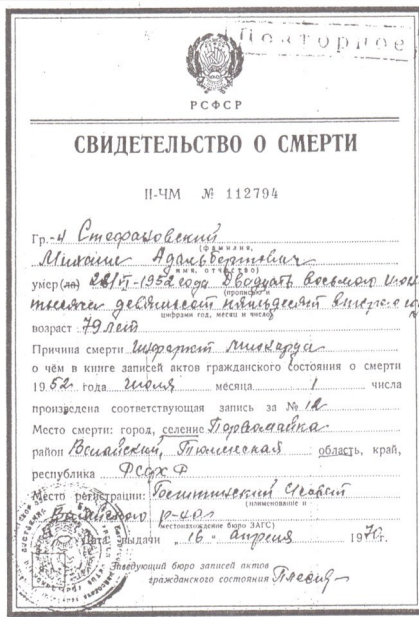 Повторное
РСФСР
СВИДЕТЕЛЬСТВО О СМЕРТИ
II-ЧМ № 112794
Гр.-н Стефановский
(фамилия,
Михаил Адальбертович
имя, отчество)
умер(ла) 28/VI-1952 года Двадцать восьмого
(прописью и
тысяча девятьсот пятьдесят второго
цифрами год, месяц и число)
возраст 79 лет
Причина смерти Инфаркт миокарда
о чём в книге записей актов гражданского состояния о смерти
1952 года июля месяца 1 числа
произведена соответствующая запись за № 12
Место смерти: город, селение
район Тюменская область, край,
республика РСФСР
Место регистрации:
(наименование и
р-на
местонахождение бюро ЗАГС)
Дата выдачи „16“ апреля 1970г.
Заведующий бюро записей актов
гражданского состояния